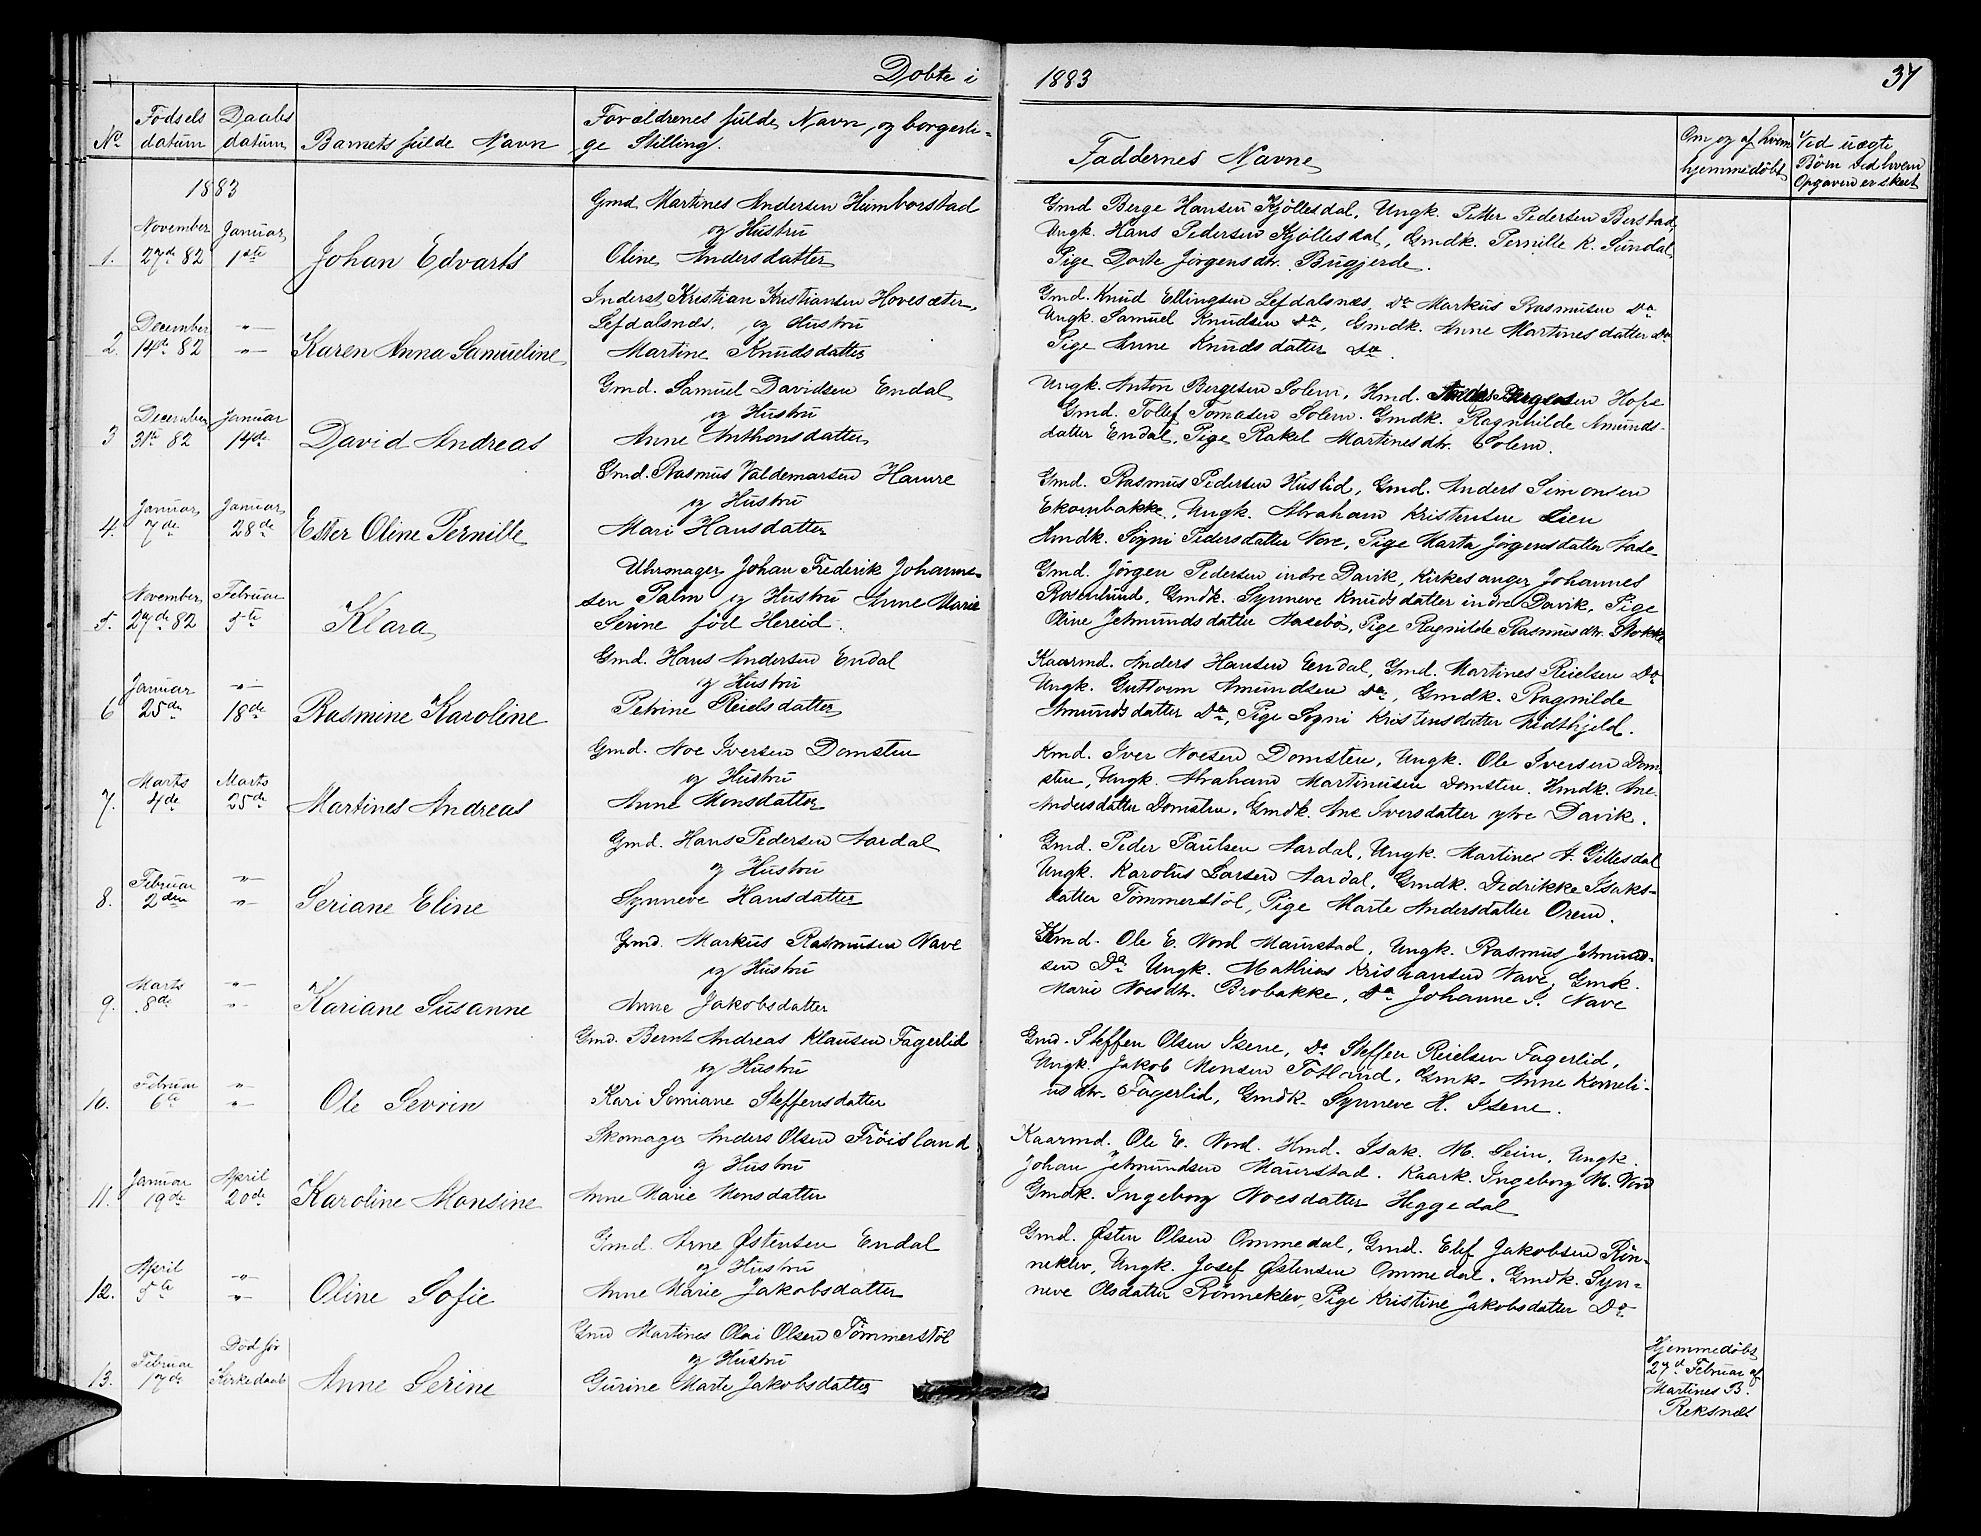 Døbte i 1883 37
No
Fødsels datum
Daabs datum
Barnets fulde Navn
Forældrenes fulde Navn, og borgerli-
ge Stilling.
Faddernes Navne
Om og af hvem hjemmedøbt
Ved uægte Børn ved hvem Opgaven er skeet
1883
1. November 27de 82 Januar 1ste Johan Edvarts
Gmd. Martines Andersen Humborstad
og Hustru
Oline Andersdatter
Gmd Berge Hansen Kjøllesdal, Ungk. Petter Pedersen Berstad,
Ungk. Hans Pedersen Kjøllesdal, Gmdk. Pernille K. Sundal,
Pige Dorte Jørgensdtr. Bugjerde.
2. December 14de 82 -"- -"- Karen Anna Samueline
Inderst, Kristian Kristiansen Hovesæter,
Lefdalsnæs. og Hustru
Martine Knudsdatter
Gmd. Knud Ellingsen Lefdalsnæs, Do Markus Rasmusen Do
Ungk. Samuel Knudsen Do, Gmdk. Anne Martinesdatter Do
Pige Anne Knudsdatter Do.
3 December 31te 82 Januar 14de David Andreas
Gmd. Samuel Davidsen Endal
og Hustru
Anne Anthonsdatter
Ungk. Anton Bergesen Solem, Kmd. Hope
Gmd. Tollef Tomasen Solem. Gmdk. Ragnhilde Amunds-
datter Endal, Pige Rakel Martinesdtr. Solem.
4. Januar 7de Januar 28de Ester Oline Pernille
Gmd. Rasmus Valdemarsen Hamre
og Hustru
Mari Hansdatter
Gmd. Rasmus Pedersen Huslid, Gmd. Anders Simonsen
Ekornbakke, Ungk. Abraham Kristensen Lien
Gmdk. Signi Pedersdatter Nore, Pige Marta Jørgensdatter
5. November 27de 82 Februar 5te Klara
Uhrmager Johan Frederik Johanne-
sen Palm og Hustru Anne Marie
Serine född Hereid.
Gmd. Jörgen Pedersen indre Davik, Kirkesanger Johannes
Rosenlund, Gmdk. Synneve Knudsdatter indre Davik, Pige
Oline Jetmundsdatter Aasebö, Pige Ragnilde Rasmusdtr.
6 Januar 25de -"- 18de Rasmine Karoline
Gmd. Hans Andersen Endal
og Hustru
Petrine Reielsdatter
Kaarmd. Anders Hansen Endal, Gmd. Martines Reielsen Do
Ungk. Guttorm Amundsen Do, Gmdk. Ragnilde
Amundsdatter Do, Pige Signi Kristensdatter Midthjeld.
7. Marts 4de Marts 25de Martines Andreas
Gmd. Noe Iversen Domsten
og Hustru
Anne Monsdatter
Kmd. Iver Noesen Domsten, Ungk. Ole Iversen Dom-
sten, Ungk. Abraham Martinusen Domsten. Kmdk. Ane
Andersdatter Domsten. Gmdk. Ane Iversdatter ytre Davik.
8. Februar 2den -"- -"- Seriane Eline
Gmd. Hans Pedersen Aardal
og Hustru
Synneve Hansdatter
Gmd. Peder Paulsen Aardal, Ungk. Martines A. Gillesdal
Ungk. Karolus Larsen Aardal, Gmdk. Dedrikke Isaks-
datter Tömmerstöl, Pige Marte Andersdatter Orem.
9. Marts 8de -"- -"- Kariane Susanne
Gmd. Markus Rasmusen Nave
og Hustru
Anne Jakobsdatter
Kmd. Ole E. Nord Maurstad, Ungk. Rasmus Jetmund-
sen Do Ungk. Mathias Kristiansen Nave, Gmk.
Marie Noesdtr. Brobakke, Do Johanne S. Nave
10. Februar 6te -"- -"- Ole Sevrin
Gmd. Bernt Andreas Klausen Fagerlid
og Hustru
Kari Semiane Steffensdatter
Gmd. Steffen Olsen Isene, Do Steffen Reielsen Fagerlid,
Ungk. Jakob Monsen Totland, Gmk. Anne Korneli-
usdtr. Fagerlid, Gmdk. Synneve H. Isene.
11. Januar 19de April 20de Karoline Monsine
Skomager Anders Olsen Fröisland
og Hustru
Anne Marie Monsdatter
Kaarmd. Ole E. Nord. Hmd. Isak M. Seim, Ungk.
Johan Jetmundsen Maurstad. Kaark. Ingeborg M. Nord
Gmdk. Ingeborg Noesdatter Heggedal
12. April 5te -"- -"- Oline Sofie
Gmd. Arne Østensen Endal
og Hustru
Anne Marie Jakobsdatter
Gmd. Østen Olsen Ommedal, Gmd. Elef Jakobsen Rön-
neklev, Ungk. Josef Østensen Ommedal. Gmdk. Syn-
neve Olsdatter Rönneklev, Pige Kristine Jakobsdatter Do
13. Februar 17de Död för Kirkedaab Anne Serine
Gmd Martines Olai Olsen Tömmerstöl
og Hustru
Gurine Marte Jakobsdatter
Hjemmedöbt
27d Februar af
Martines B.
Reksnæs